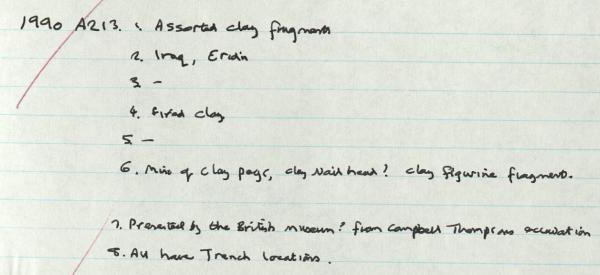 1990 A213. 1. Assorted clay fragments
2. Iraq, Eridu
3 -
4. Fired clay
5 -
6. Mix of clay pegs, clay nail head? clay figurine fragment.
7. Presented by the British museum? from Campbell Thompsons excavation
8. All have Trench locations.